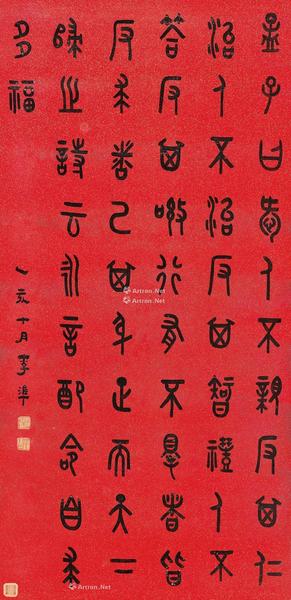 孟子曰愛人不親反其仁
治人不治反其智禮人不
答反其敬行有不得者皆
反求諸己其身正而天下
歸之詩云永言配命自求
多福
乙亥十月李準
Artron.Net
Artron.Net
Artron.Net
Artron.Net